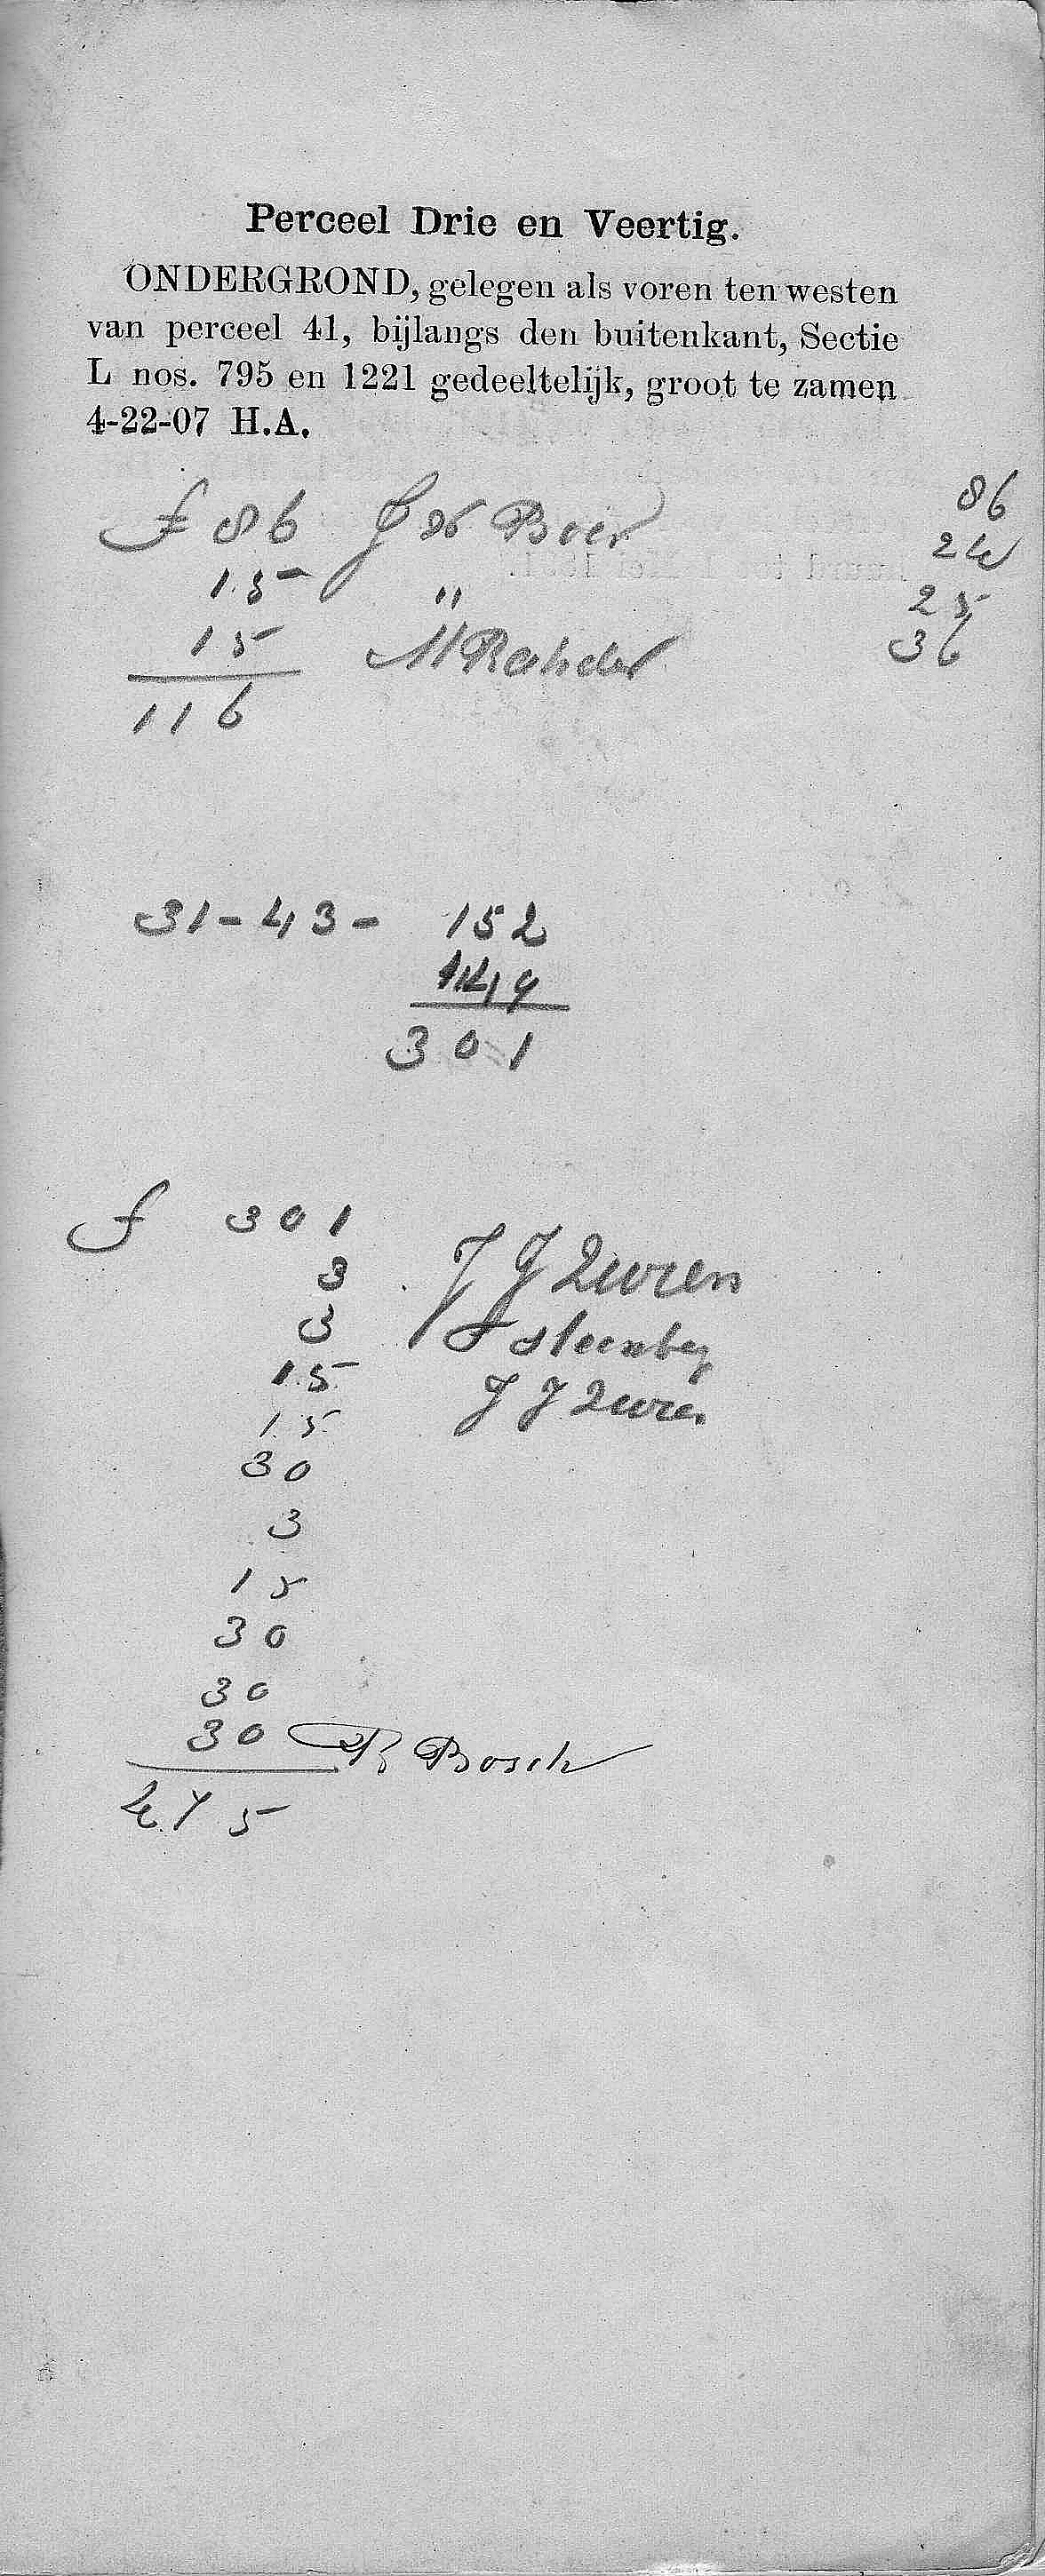 Perceel Drie en Veertig.
ONDERGROND, gelegen als voren ten westen
van perceel 41, bijlangs den buitenkant, Sectie
L nos. 795 en 1221 gedeeltelijk, groot te zamen
4-22-07 H.A.
f 86 J de Boer 86
15 " 24
15 M Rahder 25
116 36
31-43- 152
149
301
f 301
3 J J
3 Steenberg
15 J J
15
30
3
15
30
30
30 Bosch
475